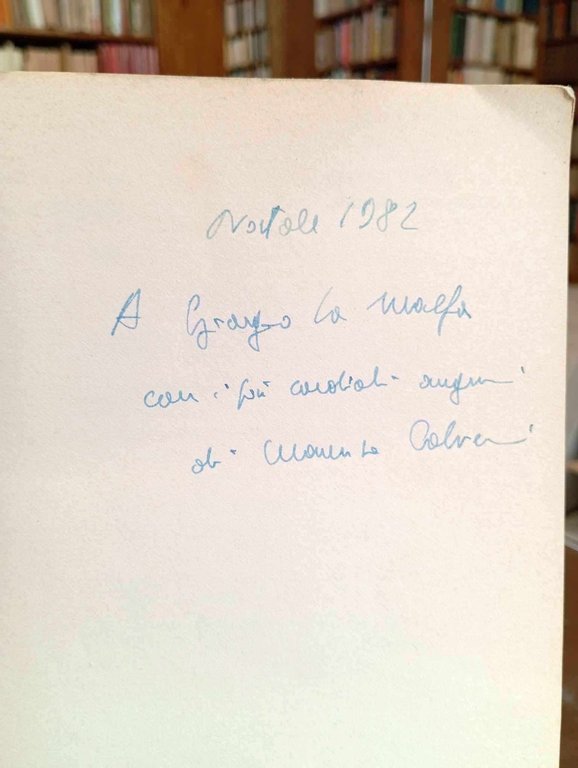 Natale 1982
A Giorgio La Malfa
con i più cordiali auguri
di Maurizio Calvesi